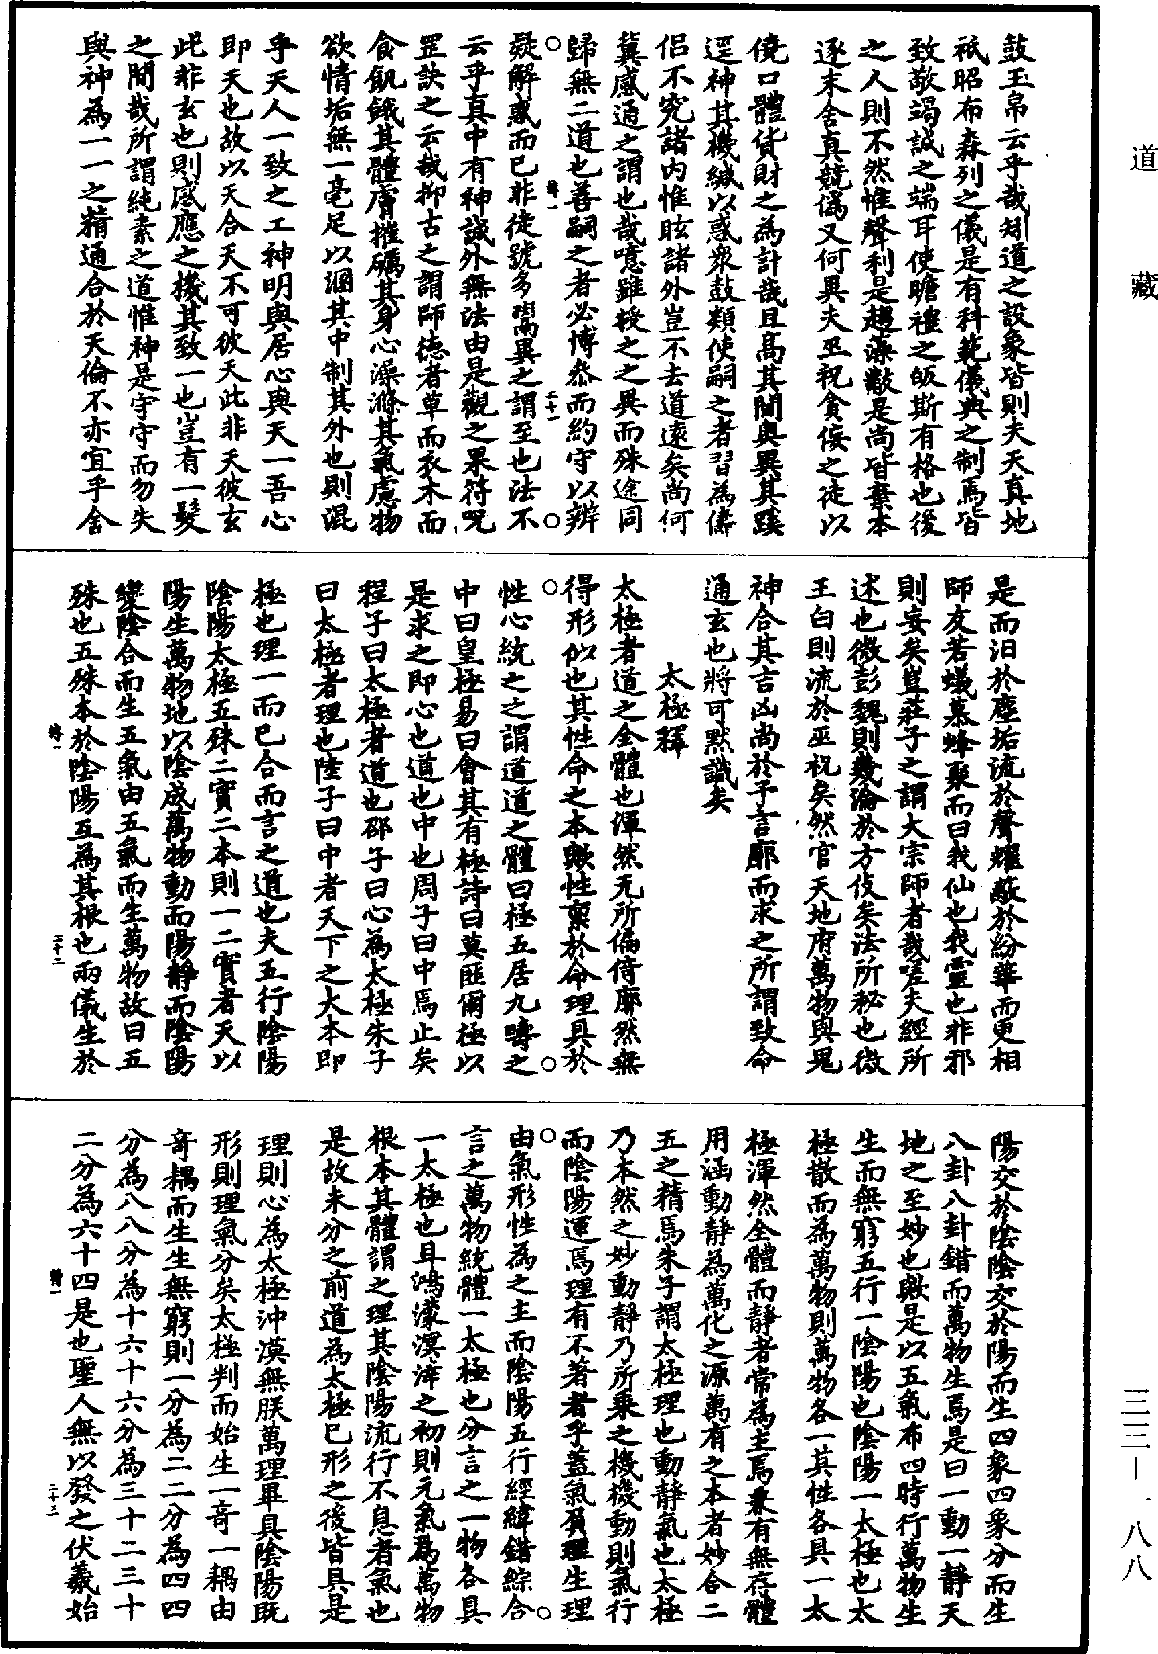 道藏
鼓玉帛云乎哉矧道之設象皆則夫天真地
祇昭布森列之儀是有科範儀典之制焉皆
致敬竭誠之端耳使瞻禮之皈斯有格也後
之人則不然惟聲利是趨藻黻是尚皆棄本
逐末舍真競偽又何異夫巫祝貪佞之徒以
僥口體貨財之為計哉且高其閫奧異其蹊
逕神其機緘以惑眾鼓類使嗣之者習為儔
侶不究諸內惟眩諸外豈不去道遠矣尚何
冀感通之謂也哉噫雖授之之異而殊途同
歸無二道也善嗣之者必博參而約守以辨
疑解惑而已非徒號多鬻異之謂至也法不
云乎真中有神誠外無法由是觀之果符咒
罡訣之云哉抑古之謂師德者草而衣木而
食飢餓其體膚摧礪其身心澡滌其氣慮物
欲情垢無一毫足以溷其中制其外也則混
乎天人一致之工神明與居心與天一吾心
即天也故以天合天不可彼天此非天彼玄
此非玄也則感應之機其致一也豈有一髮
之間哉所謂純素之道惟神是守守而勿失
與神為一一之精通合於天倫不亦宜乎舍
是而汨於塵垢流於聲耀蔽於紛華而更相
師友若蟻慕蜂聚而曰我仙也我靈也非邪
則妄矣豈莊子之謂大宗師者哉嗟夫經所
述也微彭魏則幾淪於方伎矣法所秘也微
王白則流於巫祝矣然官天地府萬物與鬼
神合其吉凶尚於予言廓而求之所謂致命
通玄也將可默識矣
太極釋
太極者道之全體也渾然无所偏倚廓然無
得形似也其性命之本歟性稟於命理具於
性心統之之謂道道之體曰極五居九疇之
中曰皇極易曰會其有極詩曰莫匪爾極以
是求之即心也道也中也周子曰中焉止矣
程子曰太極者道也邵子曰心為太極朱子
曰太極者理也陸子曰中者天下之大本即
極也理一而已合而言之道也夫五行陰陽
陰陽太極五殊二實二本則一二實者天以
陽生萬物地以陰成萬物動而陽靜而陰陽
變陰合而生五氣由五氣而生萬物故曰五
殊也五殊本於陰陽互為其根也兩儀生於
陽交於陰陰交於陽而生四象四象分而生
八卦八卦錯而萬物生焉是曰一動一靜天
地之至妙也歟是以五氣布四時行萬物生
生而無窮五行一陰陽也陰陽一太極也太
極散而為萬物則萬物各一其性各具一太
極渾然全體而靜者常為主焉兼有無存體
用涵動靜為萬化之源萬有之本者妙合二
五之精焉朱子謂太極理也動靜氣也太極
乃本然之妙動靜乃所乘之機機動則氣行
而陰陽運焉理有不著者乎蓋氣負理生理
由氣形性為之主而陰陽五行經緯錯綜合
言之萬物統體一太極也分言之一物各具
一太極也且鴻濛溟涬之初則元氣為萬物
根本其體謂之理其陰陽流行不息者氣也
是故未分之前道為太極已形之後皆具是
理則心為太極沖漠無朕萬理畢具陰陽既
形則理氣分矣太極判而始生一奇一耦由
奇耦而生生無窮則一分為二二分為四四
分為八八分為十六十六分為三十二三十
二分為六十四是也聖人無以發之伏羲始
三三—一八八